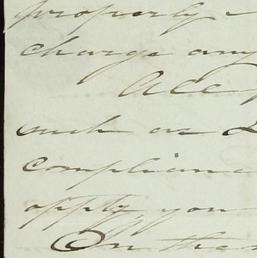 property
charge any
All
such as
complianc
apply, you
On the